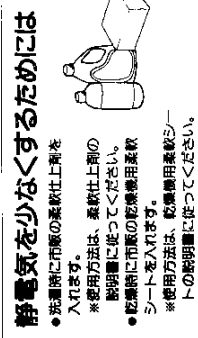 静電気を少なくするためには
●洗濯時に市販の柔軟仕上剤を
入れます。
※使用方法は、柔軟仕上剤の
説明書に従ってください。
●乾燥時に市販の乾燥機用柔軟
シートを入れます。
※使用方法は、乾燥機用柔軟シー
トの説明書に従ってください。